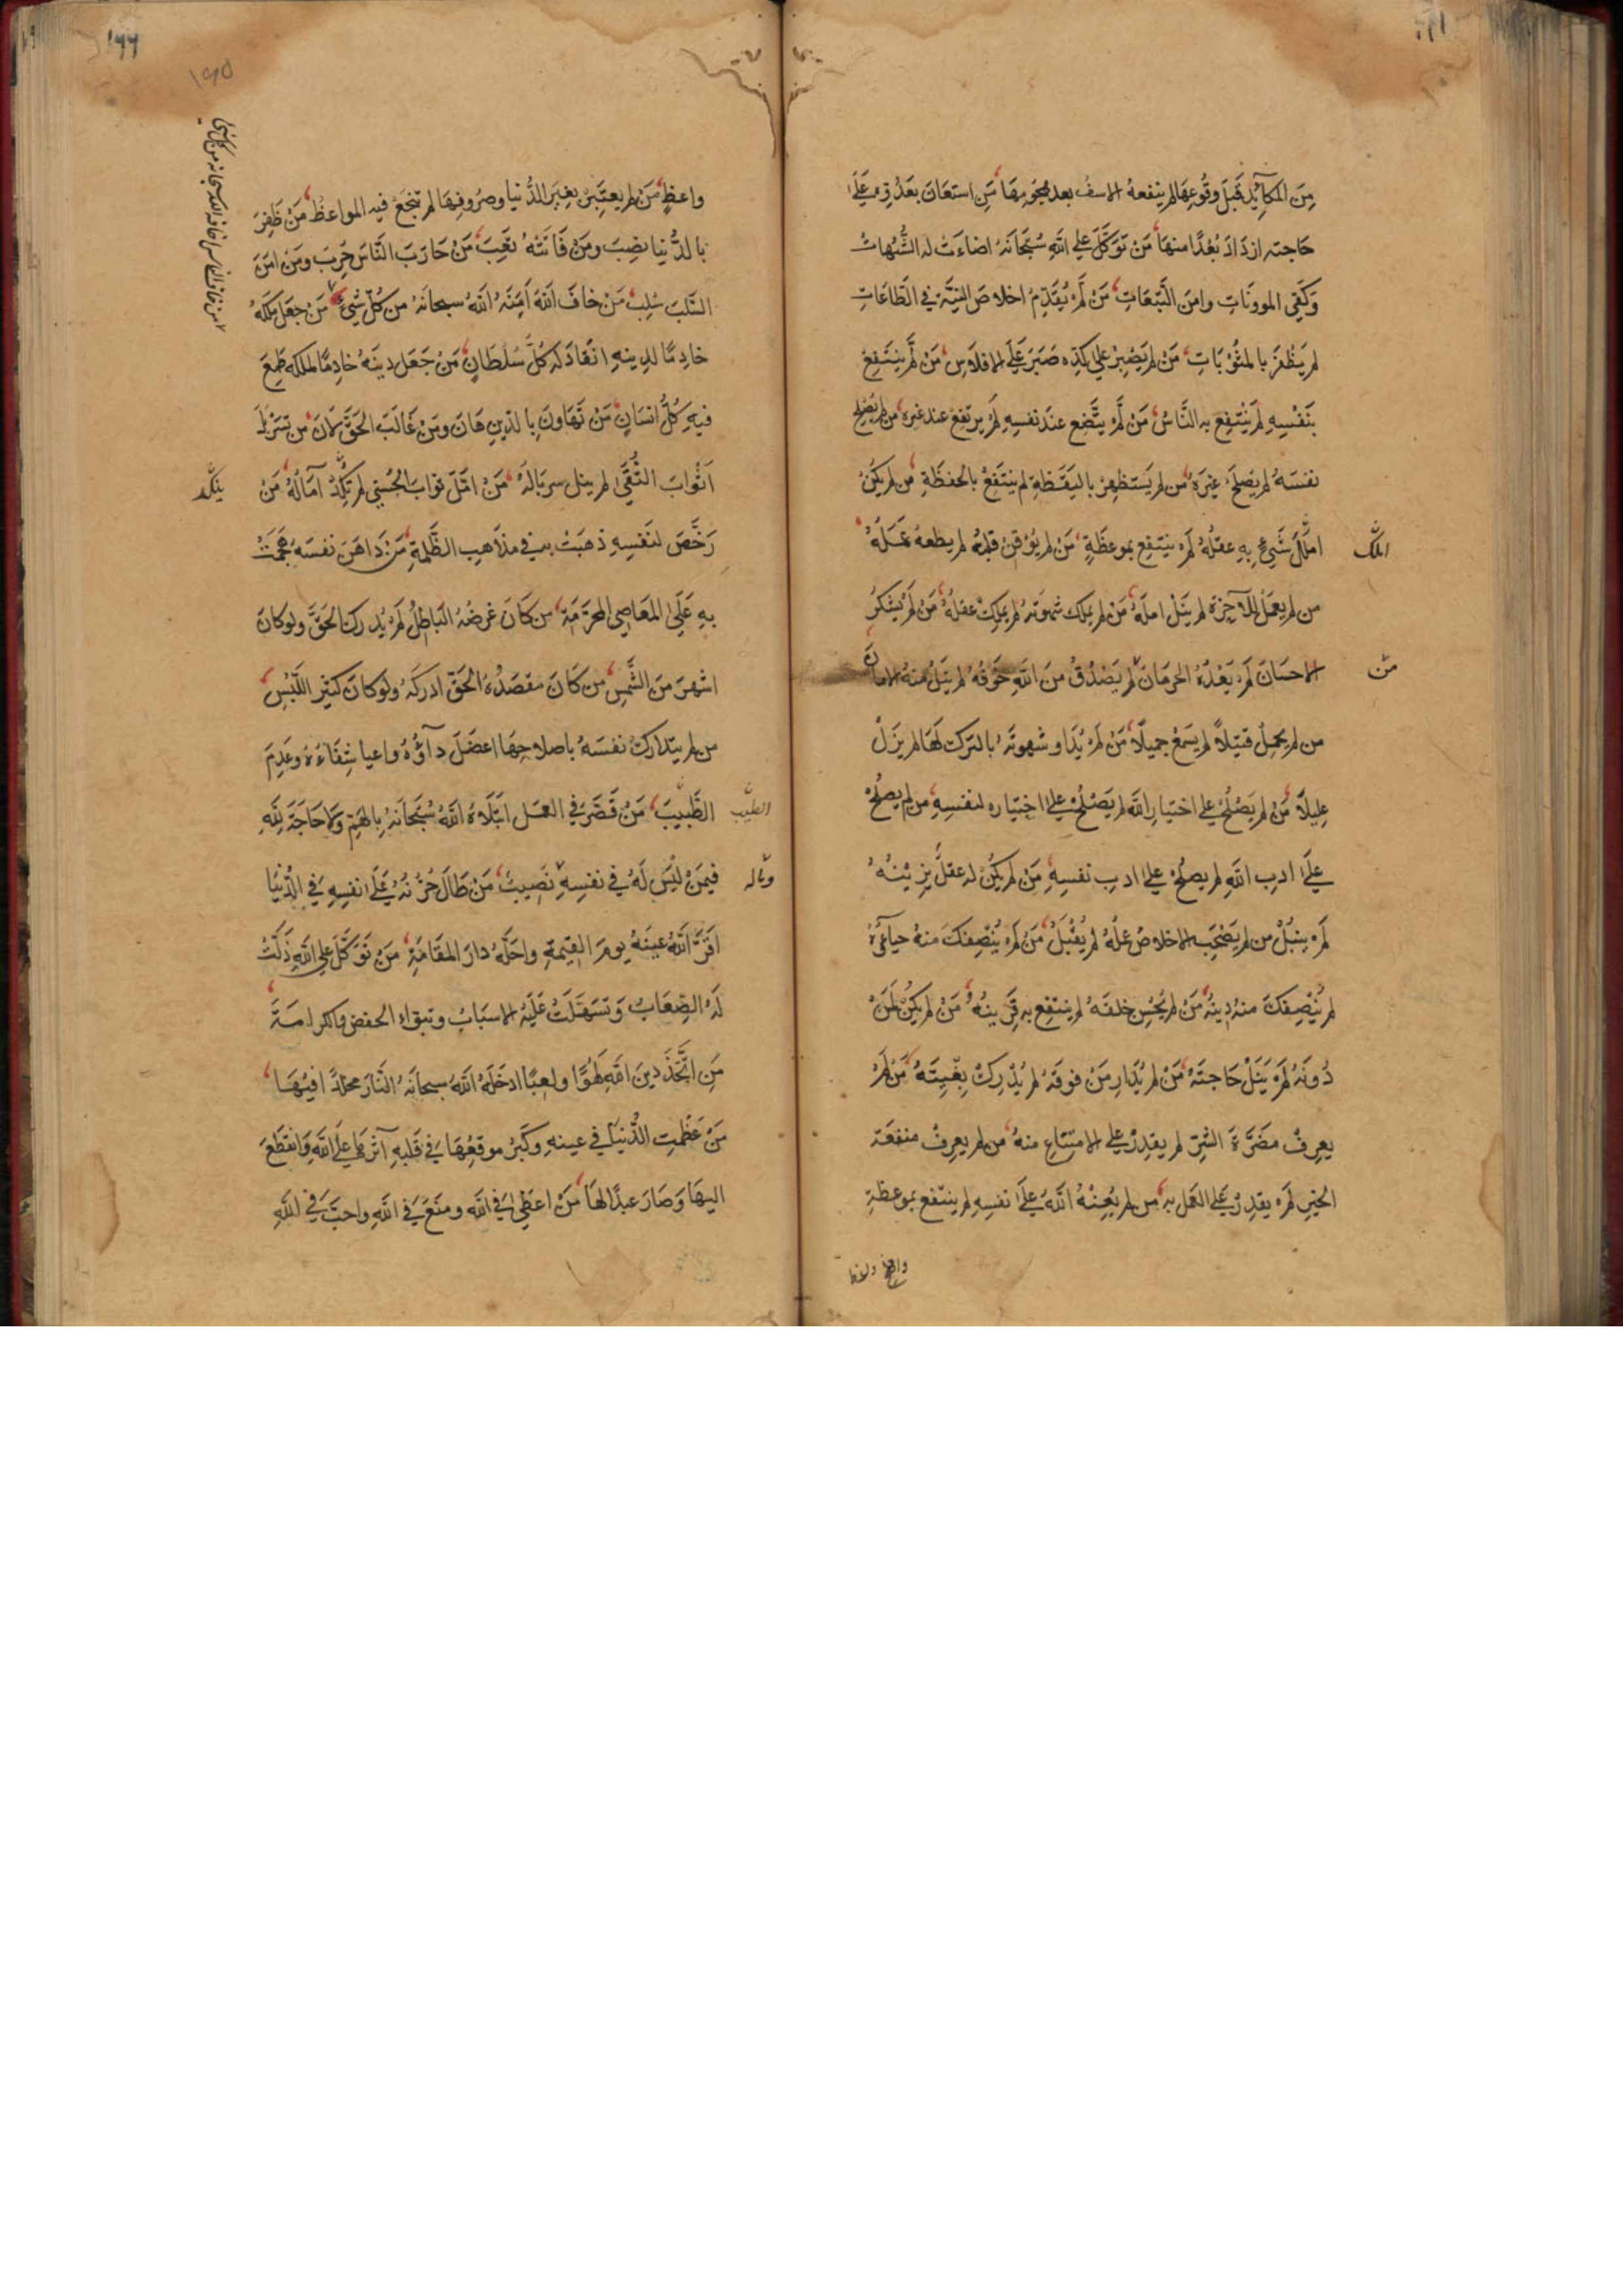 مِنَ المكآئِدِ قَبلَ وقُوعِهَا لم ينفعهُ الاسفُ بعد هجُومِهَا مَنِ استعَانَ بعَدُوِّه عَلَىٰ
حَاجته ازدَادَ بُعْدًا منهَا مَنْ تَوَكَّلَ على اللهِ سُبْحَانَهُ اضاءَتْ له الشُّبُهاتُ
وَكُفِي الموونَاتِ وامِنَ التَّبِعَاتِ مَنْ لَمْ يُقَدِّمْ اخلاصَ النِيَّةِ في الطَّاعَاتِ
لم يَظْفَرْ بالمَثُوْبَاتِ مَنْ لم يَصْبِرْ على كَدِّه صَبَرَ عَلَى الافلاَسِ مَنْ لَّمْ يَنْتَفِعْ
بَنَفْسِهِ لَم يَنْتَفِع به النَّاسُ مَنْ لَّمْ يَتَّضِع عندَ نفسِهِ لَمْ يرتفع عند غيره من لم يُصْلِح
نفسَهُ لم يُصْلِحْ غيرَهُ من لم يَستظهِرْ باليَقَظَةِ لم ينتَفِعْ بالحفظَةِ من لم يكُنْ
املَكَ شَيْءٍ بِهِ عقلُهُ لَمْ ينتفِع بموعظَةٍ مَنْ لم يُوْقِنْ قلبُهُ لم يطعهُ عَمَلُهُ
املك
من لم يعمَلْ للآخِرَةِ لم يَنَلْ املَهُ مَنْ لم يملِك شهوتَهُ لم يملِكْ عقلَهُ مَنْ لَمْ يشكُرْ
الاحسَانَ لَمْ يَعْدُهُ الحرمَانُ لم يَصْدُقْ مِنَ اللهِ خَوْفُهُ لم يَنَلْ منهُ الامانَ
مَن
من لم يحمِلْ قَيْلاً لم يسمَعْ جميلاً مَنْ لم يُدَاوِ شهوتَهُ بالتركِ لَهَا لم يزَلْ
عليلاً مَنْ لم يَصْلُحْ على اختيارِ اللهِ لم يَصْلُحْ على اختياره لنفسِهِ من لم يصْلُحْ
عَلَى ادبِ اللهِ لم يصلُحْ على ادبِ نفسِهِ مَن لم يكُنْ له عقلٌ يزينُهُ
لَمْ ينبُلْ من لم يَصْحَبِ الاخلاصُ عملَهُ لم يُقْبَلْ مَنْ لَمْ يُنْصِفكَ منهُ حياؤُهُ
لم يُنْصِفكَ منه دِينُهُ مَنْ لم يحسُنْ خلقهُ لم ينتفع به قَرِينُهُ مَنْ لم يَكُنْ لِمَنْ
دُونَهُ لَمْ يَنَلْ حَاجتَهُ مَنْ لم يُدَارِ مَنْ فوقَهُ لم يُدْرِكْ بغْيتَهُ مَنْ لَمْ
يعرِفْ مضَرَّةَ الشَّرِّ لم يقدِرْ على الامتِنَاعِ منهُ من لم يعرِفْ منفعَة
الخيرِ لَمْ يقدِرْ عَلَى العَمَلِ به من لم يُعِنْهُ اللهُ عَلَىٰ نفسِهِ لم ينتفع بموعظةِ
واعظ
۱۶۶
واعظٍ مَنْ لم يعتَبِرْ بِغِيَرِ الدُّنيا وصرُوفِهَا لم تنجَعْ فيه المواعظُ مَنْ ظَفِرَ
بالدُّنيا نصِبَ ومَنْ فَاتَتْهُ تعِبَ مَنْ حَارَبَ النَّاسَ حُرِبَ ومَن امِنَ
السَّلبَ سُلِبَ مَنْ خافَ اللهَ اَمِنَهُ اللهُ سبحانَهُ من كُلِّ شيْءٍ مَنْ جعَلَ مُلكَهُ
خادِمًا لدِينهِ انقَادَ لَهُ كُلُّ سُلطَانٍ مَنْ جَعَل دينَهُ خادِمًا لملكه طَمِعَ
فيهِ كُلُّ انسَانٍ مَنْ تَهَاونَ بالدّينِ هَانَ ومَنْ غَالَبَ الحَقَّ لَانَ من تَسَرْبَلَ
اَثْوابَ التُّقىٰ لم يبل سربَالُهُ مَنْ امَّلَ ثوابَ الحُسْنى لم تنكَدْ آمَالُهُ مَنْ
رَخَّصَ لنَفسِهِ ذهبَتْ به في مذاهِبِ الظُّلمةِ مَنْ دَاهَنَ نفسَهُ هجمَتْ
بِهِ عَلَى المَعَاصِي المحرَّمَةِ من كَانَ غرضُهُ البَاطِلُ لَمْ يُدركِ الحَقَّ ولوكانَ
اشهرَ مِنَ الشَّمسِ من كَانَ مقصَدُهُ الحَقَّ ادركَهُ ولوكانَ كثير اللَّبْسِ
من لم يتداركْ نفسَهُ باصلاحِهَا اعضَلَ دآؤُهُ واعيا شِفَاءُهُ وعَدِمَ
الطَّبيبَ مَنْ قَصَّرَ فِي العَمَلِ ابْتَلَاهُ اللهُ سُبْحَانَهُ بالهَمِّ وَلا حَاجَةَ لِلّٰهِ
الطبيب
فِيمَنْ لَيْسَ لَهُ في نفسِهِ نَصِيبٌ مَنْ طَالَ حُزْنُهُ عَلَىٰ نفسِهِ فِي الدُّنيَا
وماله
اقَرَّ اللهُ عينَهُ يومَ القيٰمةِ واحَلَّهُ دارَ المقَامَةِ مَنْ تَوَكَّلَ على اللهِ ذَلَّتْ
لَهُ الصِّعَابُ وَتَسَهَّلَتْ عَلَيْهِ الاسبَابُ وتبوّاء الخفض والكرامَةَ
مَنِ اتَّخَذَ دينَ اللهِ لهْوًا ولعِبًا ادخَلَهُ اللهُ سبحانَهُ النَّارَ مخلدًا فيْهَا
مَنْ عَظُمتِ الدُّنيَا في عينهِ وكَبُرَ موقعُهَا في قلبهِ آثَرَهَا عَلَى اللهِ وَانقطعَ
اليهَا وَصَارَ عبدًا لهَا مَنْ اعطىٰ فِي اللهِ ومنَعَ في اللهِ واحبَّ في اللهِ